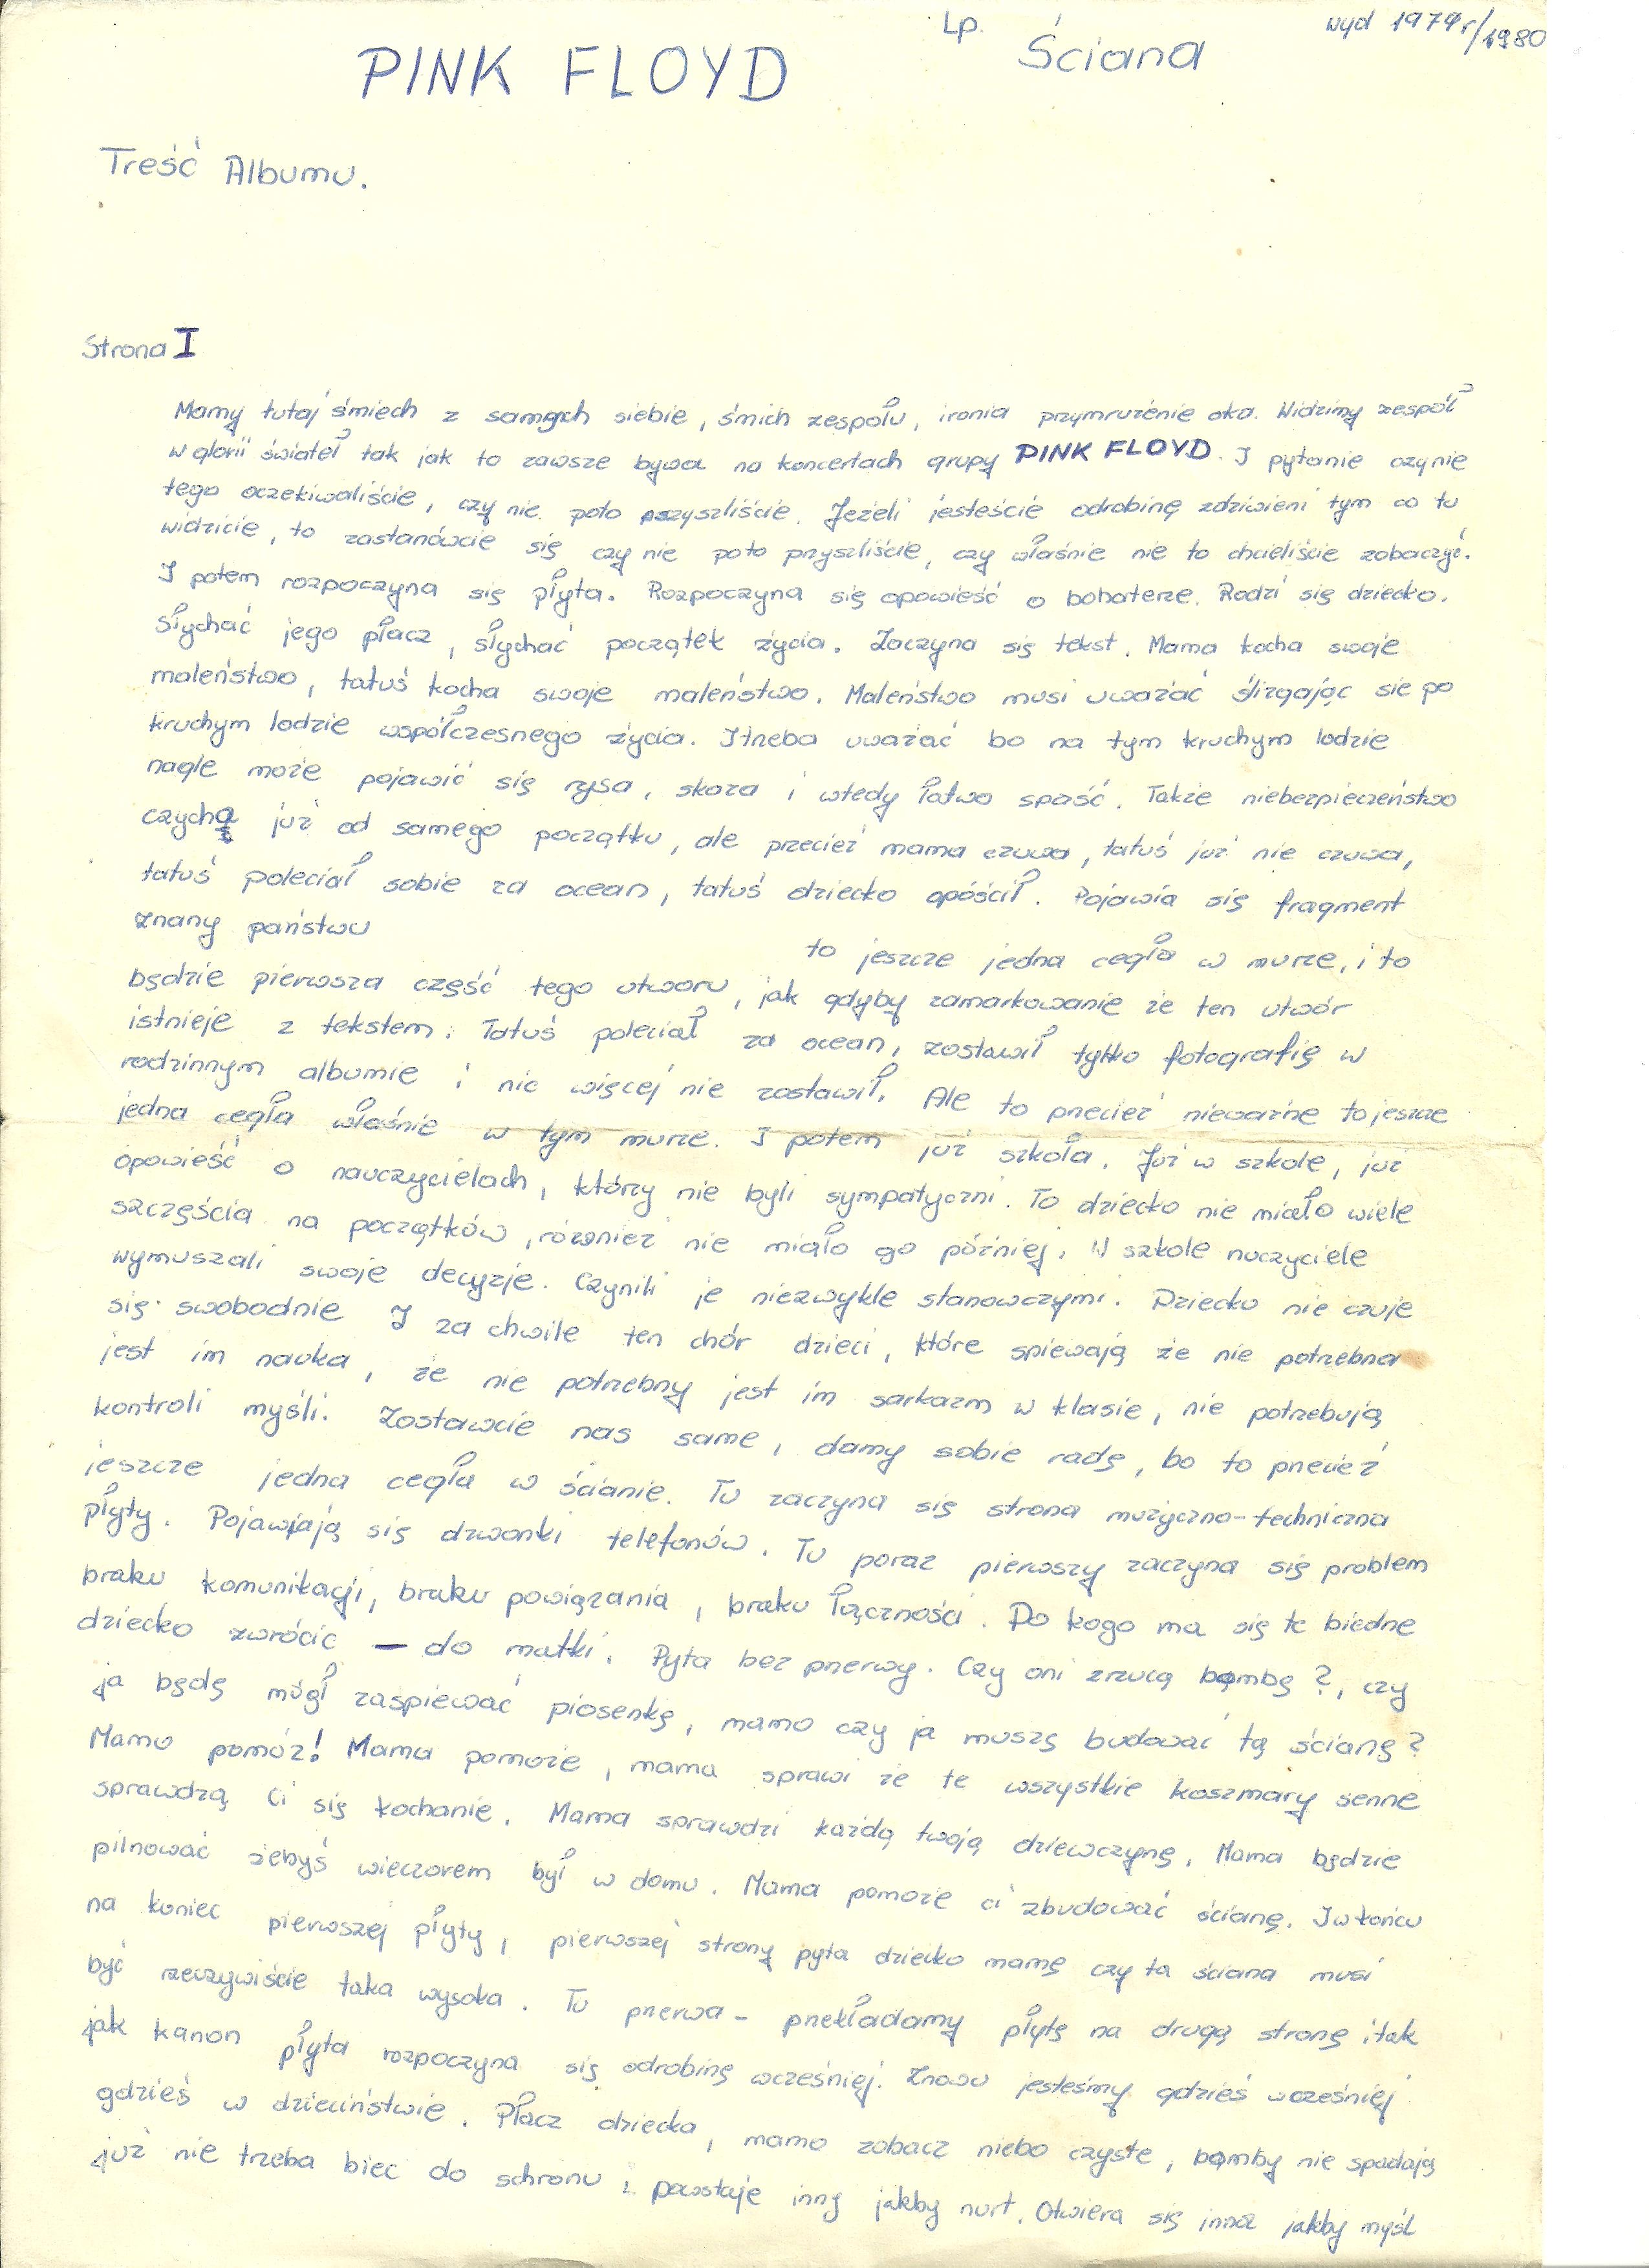 Lp. Ściana wyd 1979r/1980
PINK FLOYD
Treść Albumu.
Strona I
Mamy tutaj śmiech z samych siebie, śmich zespołu, ironia przymrużenie oka. Widzimy zespół
w glorii świateł tak jak to zawsze bywa na koncertach grupy PINK FLOYD. I pytanie czy nie
tego oczekiwaliście, czy nie poto przyszliście. Jeżeli jesteście odrobinę zdziwieni tym co tu
widzicie, to zastanówcie się czy nie poto przyszliście, czy właśnie nie to chcieliście zobaczyć.
I potem rozpoczyna się płyta. Rozpoczyna się opowieść o bohaterze. Rodzi się dziecko.
Słychać jego płacz, słychać początek życia. Zaczyna się tekst. Mama kocha swoje
maleństwo, tatuś kocha swoje maleństwo. Maleństwo musi uważać ślizgając sie po
kruchym lodzie współczesnego życia. I trzeba uważać bo na tym kruchym lodzie
nagle może pojawić się rysa, skaza i wtedy łatwo spaść. Także niebezpieczeństwo
czycha już od samego początku, ale przecież mama czuwa, tatuś już nie czuwa,
tatuś poleciał sobie za ocean, tatuś dziecko opóścił. Pojawia się fragment
znany państwu
to jeszcze jedna cegła w murze, i to
będzie pierwsza część tego utworu, jak gdyby zamarkowanie że ten utwór
istnieje z tekstem. Tatuś poleciał za ocean, zostawił tylko fotografię w
rodzinnym albumie i nic więcej nie zostawił. Ale to przecież nieważne to jeszcze
jedna cegła właśnie w tym murze. I potem już szkoła. Już w szkole, już
opowieść o nauczycielach, którzy nie byli sympatyczni. To dziecko nie miało wiele
szczęścia na początków, również nie miało go później. W szkole nuczyciele
wymuszali swoje decyzje. Czynili je niezwykle stanowczymi. Dziecko nie czuje
się swobodnie I za chwile ten chór dzieci, które spiewają że nie potrzebna
jest im nauka, że nie potrzebny jest im sarkazm w klasie, nie potrzebują
kontroli myśli. Zostawcie nas same, damy sobie radę, bo to przecież
jeszcze jedna cegła w ścianie. Tu zaczyna się strona muzyczno-techniczna
płyty. Pojawiają się dzwonki telefonów. Tu poraz pierwszy zaczyna się problem
braku komunikacji, braku powiązania, braku łączności. Do kogo ma się te biedne
dziecko zwrócic — do matki. Pyta bez przerwy. Czy oni zrzucą bombę?, czy
ja będę mógł zaspiewać piosenkę, mamo czy ja muszę budować tą ścianę?
Mamo pomóż! Mama pomoże, mama sprawi że te wszystkie koszmary senne
sprawdzą Ci się kochanie. Mama sprawdzi każdą twoją dziewczynę, Mama będzie
pilnować żebyś wieczorem był w domu. Mama pomoże ci zbudować ścianę. I w końcu
na koniec pierwszej płyty, pierwszej strony pyta dziecko mamę czy ta ściana musi
być rzeczywiście taka wysoka. Tu przerwa - przekładamy płytę na drugą stronę i tak
jak kanon płyta rozpoczyna się odrobinę wcześniej. Znowu jesteśmy gdzieś wcześniej
gdzieś w dzieciństwie. Płacz dziecka, mamo zobacz niebo czyste, bomby nie spadają
już nie trzeba biec do schronu i powstaje inny jakby nurt. Otwiera się inna jakby myśl